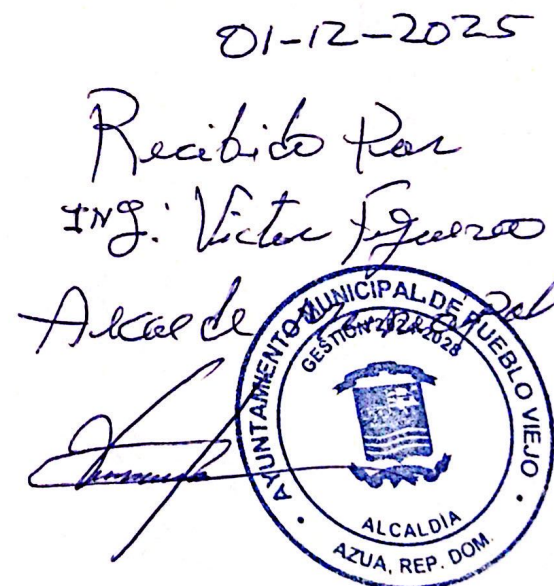 01-12-2025
Recibido Por
ING: Victor Figuereo
Alcalde Municipal
AYUNTAMIENTO MUNICIPAL DE PUEBLO VIEJO
GESTIÓN 2024-2028
ALCALDÍA
AZUA, REP. DOM.